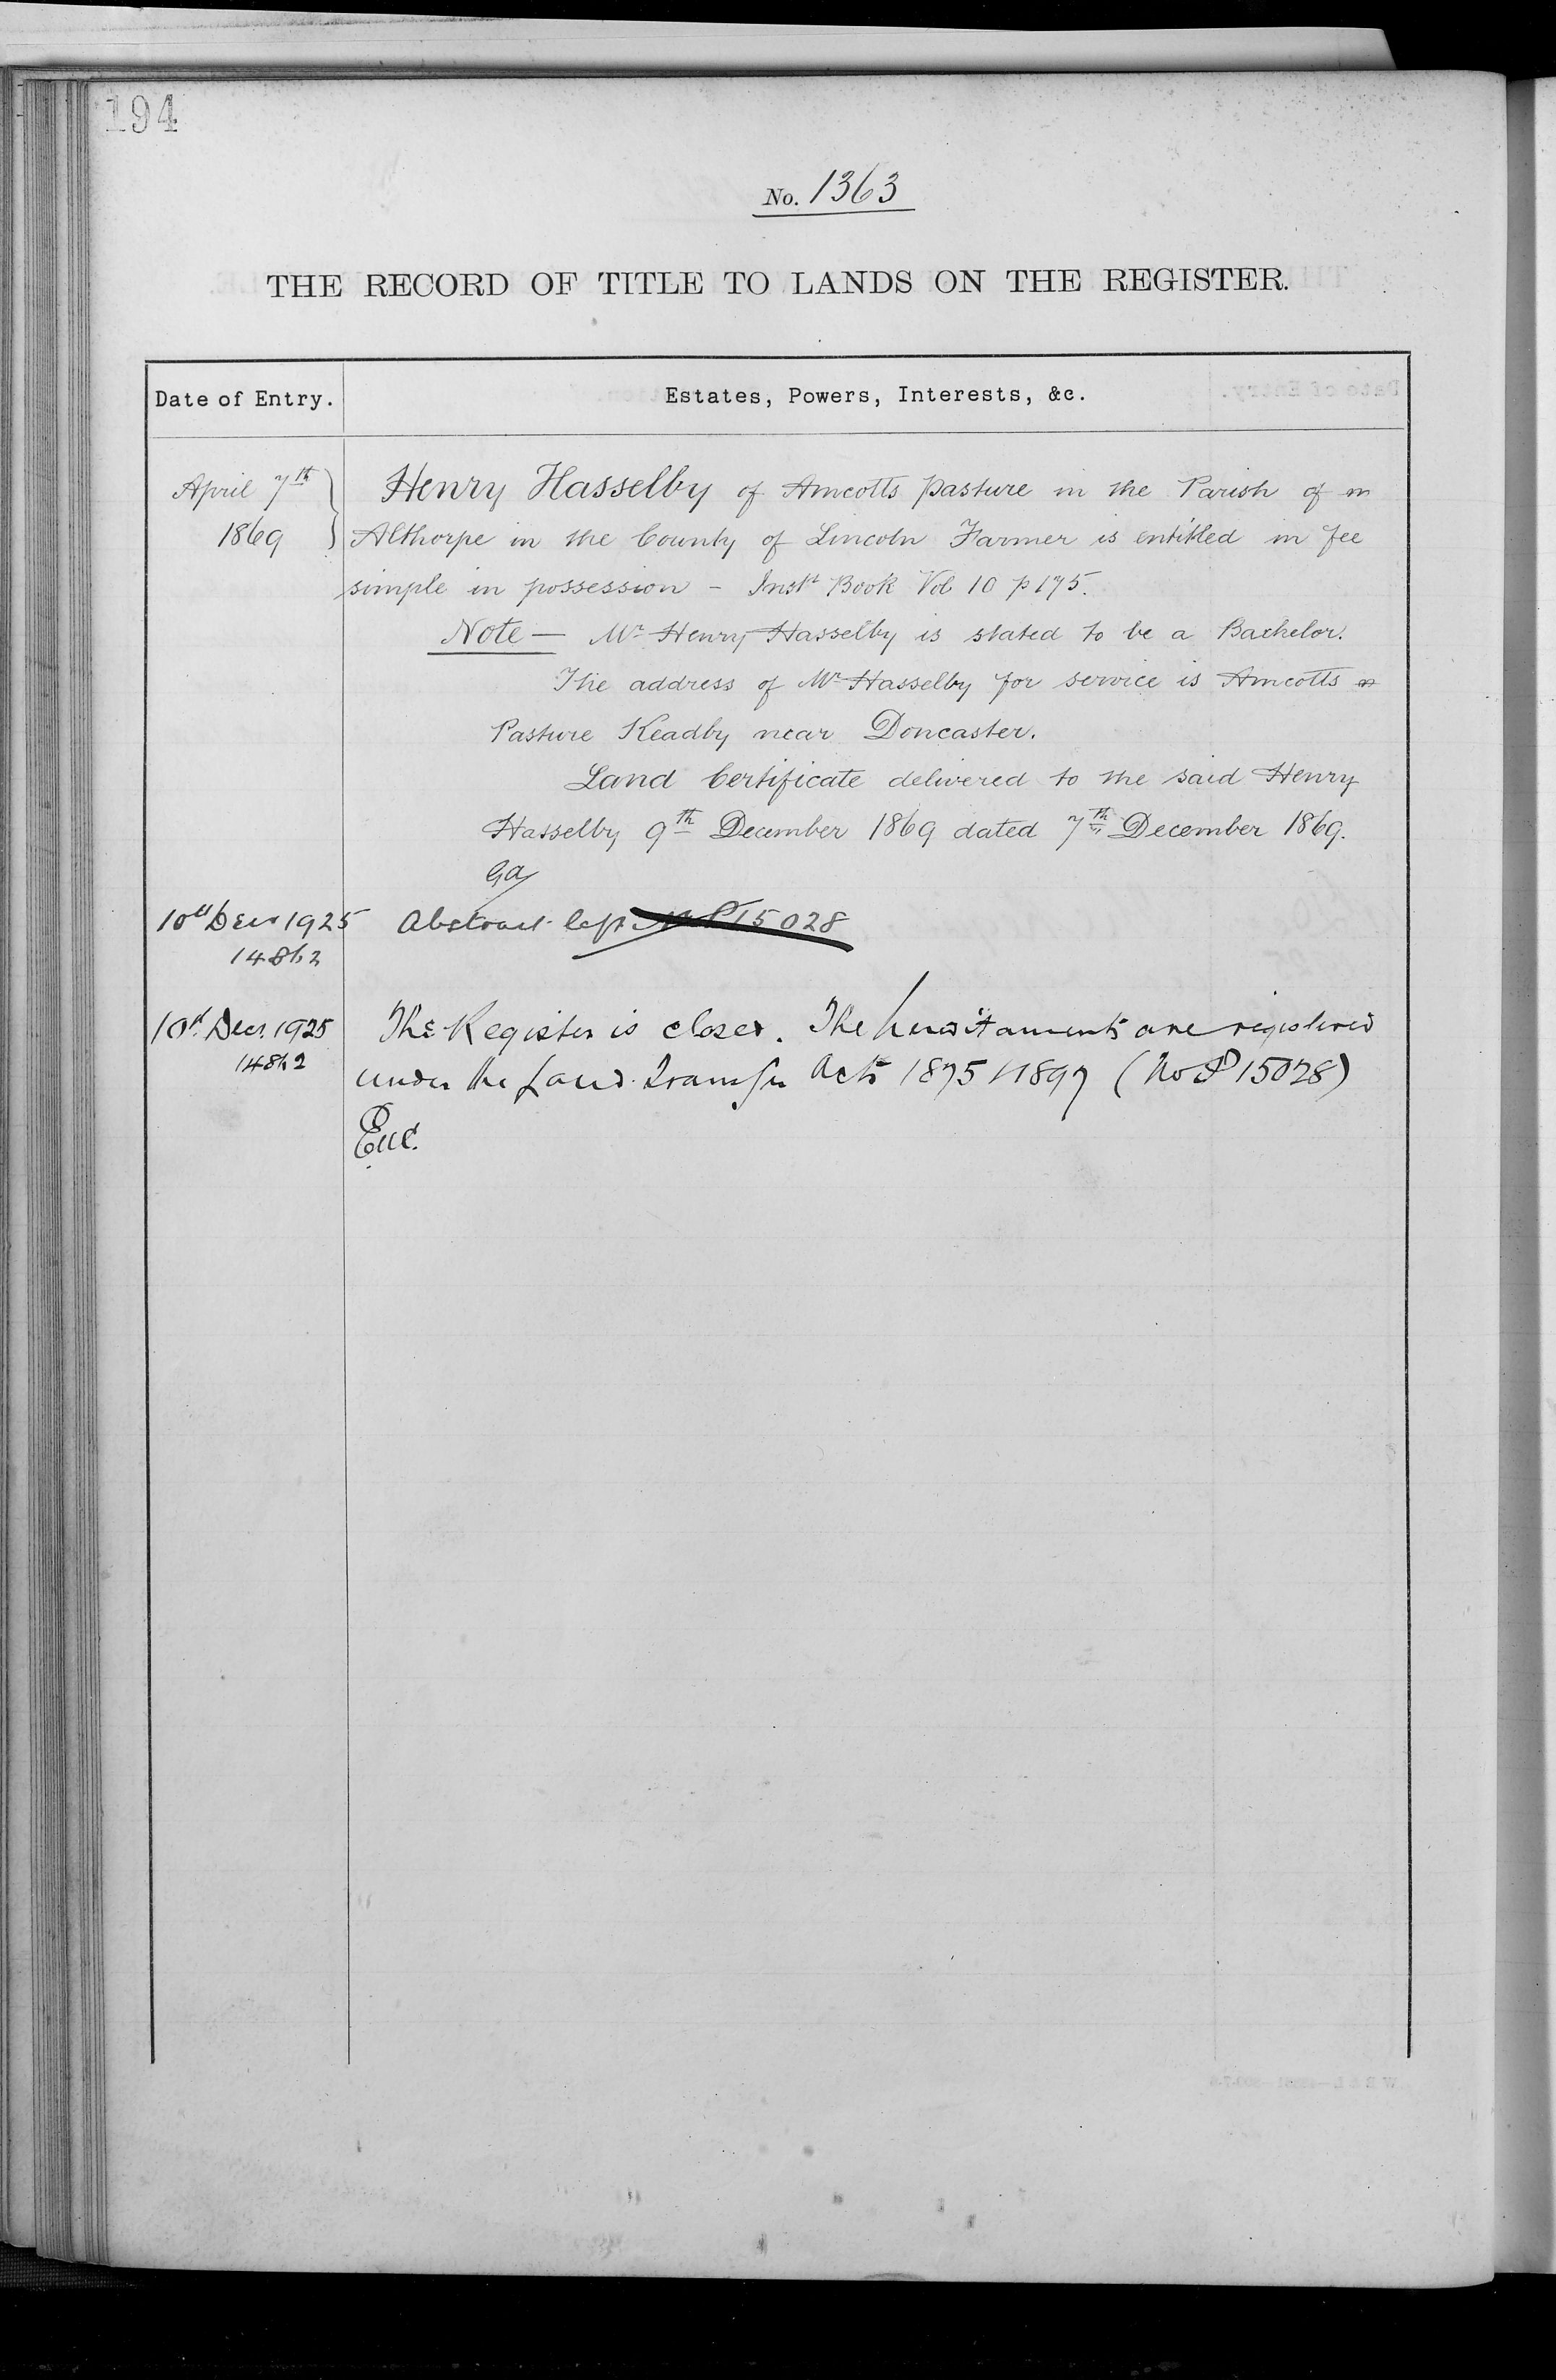 194
No. 1363
THE RECORD OF TITLE TO LANDS ON THE REGISTER.
Date of Entry. Estates, Powers, Interests, &c.
April 7th Henry Hasselby of Amcotts Pasture in the Parish of
1869 Althorpe in the County of Lincoln Farmer is entitled in fee
simple in possession - Inst. Book Vol 10 p 175.
Note - Mr Henry Hasselby is stated to be a Bachelor.
The address of Mr Hasselby for service is Amcotts
Pasture Keadby near Doncaster.
Land Certificate delivered to the said Henry
Hasselby 9th December 1869 dated 7th December 1869.
10th Decr 1925 Abstract left No P 15028
14862
10th Decr. 1925 The Register is closed. The hereditaments are registered
14862 under the Land Transfer Acts 1875 & 1897 (No P 15028)